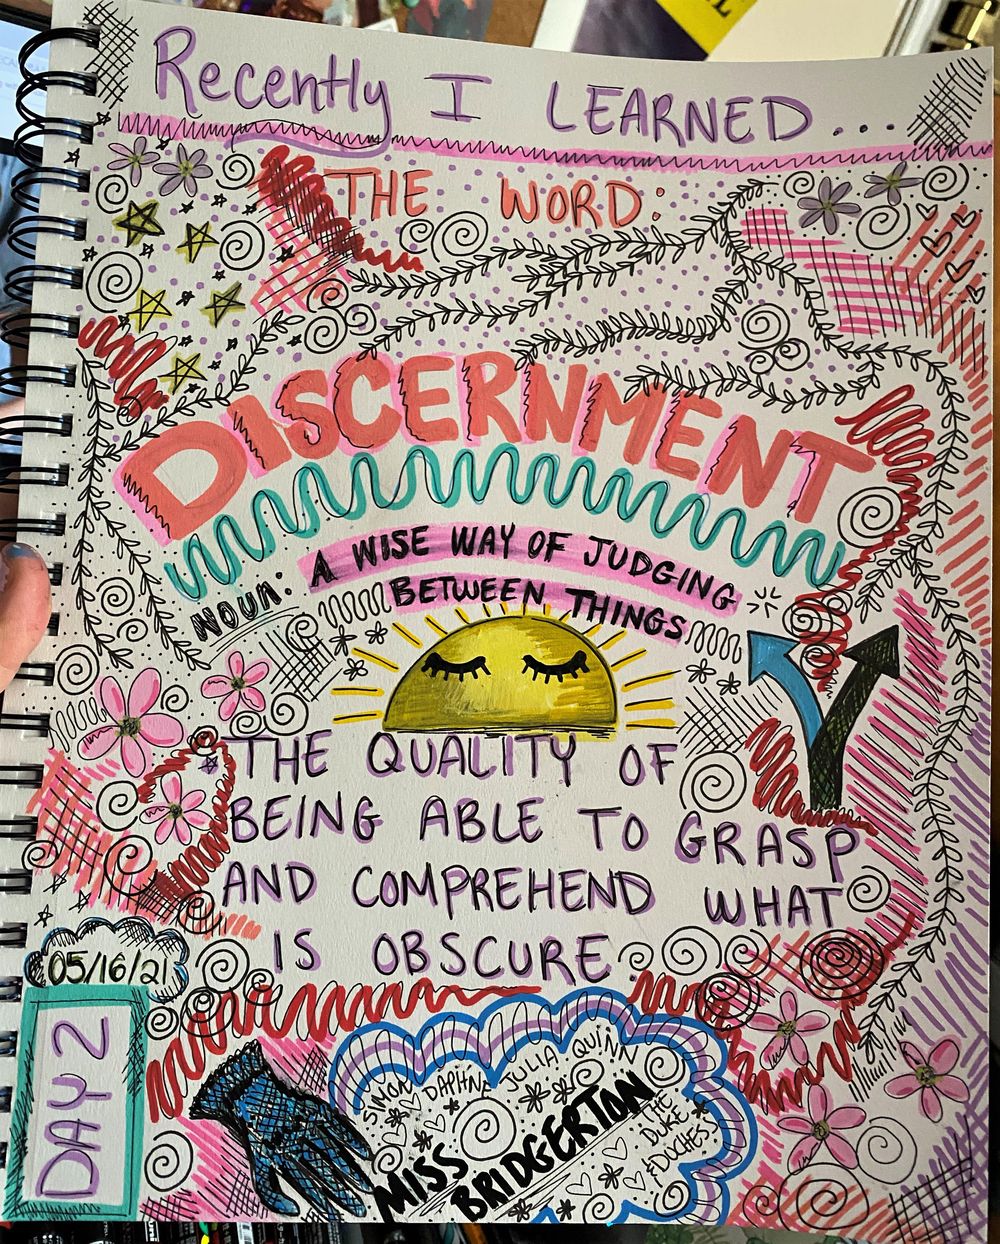 Recently I LEARNED...
THE WORD:
DISCERNMENT
NOUN: A WISE WAY OF JUDGING
BETWEEN THINGS
THE QUALITY OF
BEING ABLE TO GRASP
AND COMPREHEND WHAT
IS OBSCURE.
05/16/21
DAY 2
SIMON DAPHNE JULIA QUINN
MISS
BRIDGERTON
THE
DUKE
& DUCHESS